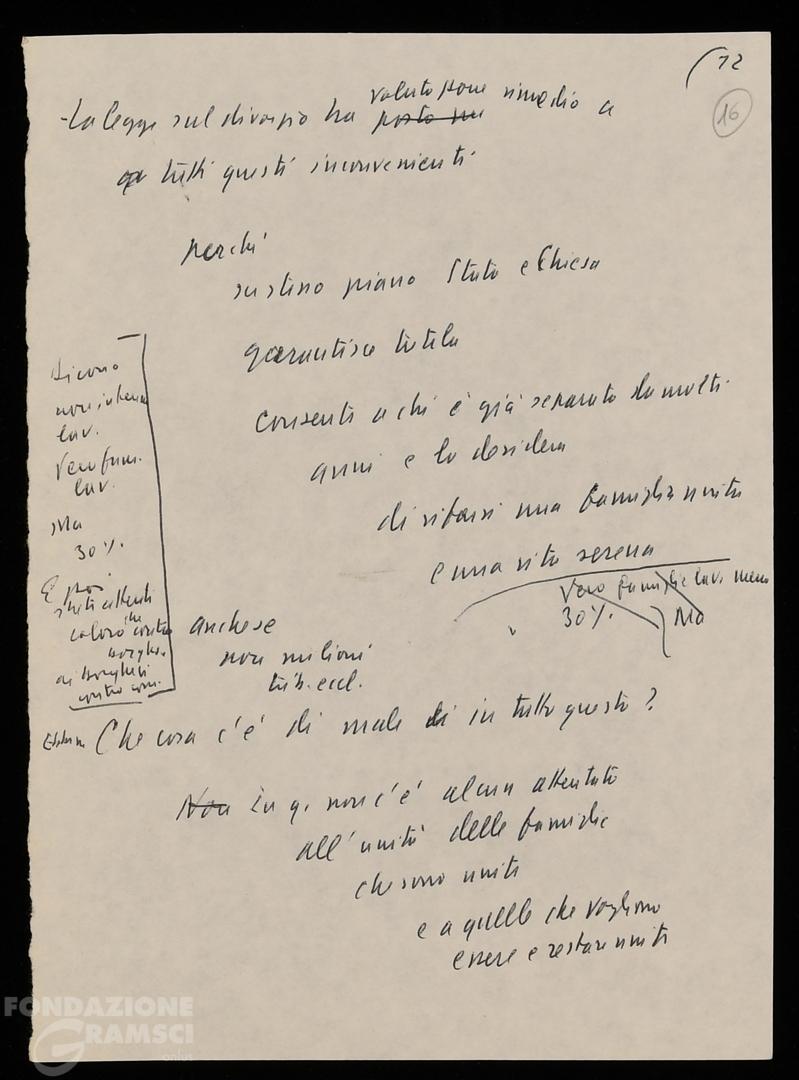 12
16
- La legge sul divorzio ha voluto porre rimedio a
posto un
a tutti questi inconvenienti
perché
su stesso piano Stato e Chiesa
garantisce tutela
Consente a chi è già separato da molti
anni e lo desidera
di rifarsi una famiglia unita
e una vita serena
Vero famiglie lav. meno
30%. Ma
Dicono
non interessa
lav.
Vero fam.
lav.
Ma
30%.
E poi
stati attenti
coloro contro
borghesi
contro
anche se
non milioni
trib. eccl.
Che cosa c'è di male in tutto questo?
Non In q. non c'è alcun attentato
all'unità delle famiglie
che sono unite
e a quelle che vogliono
essere e restare unite
FONDAZIONE
GRAMSCI
onlus